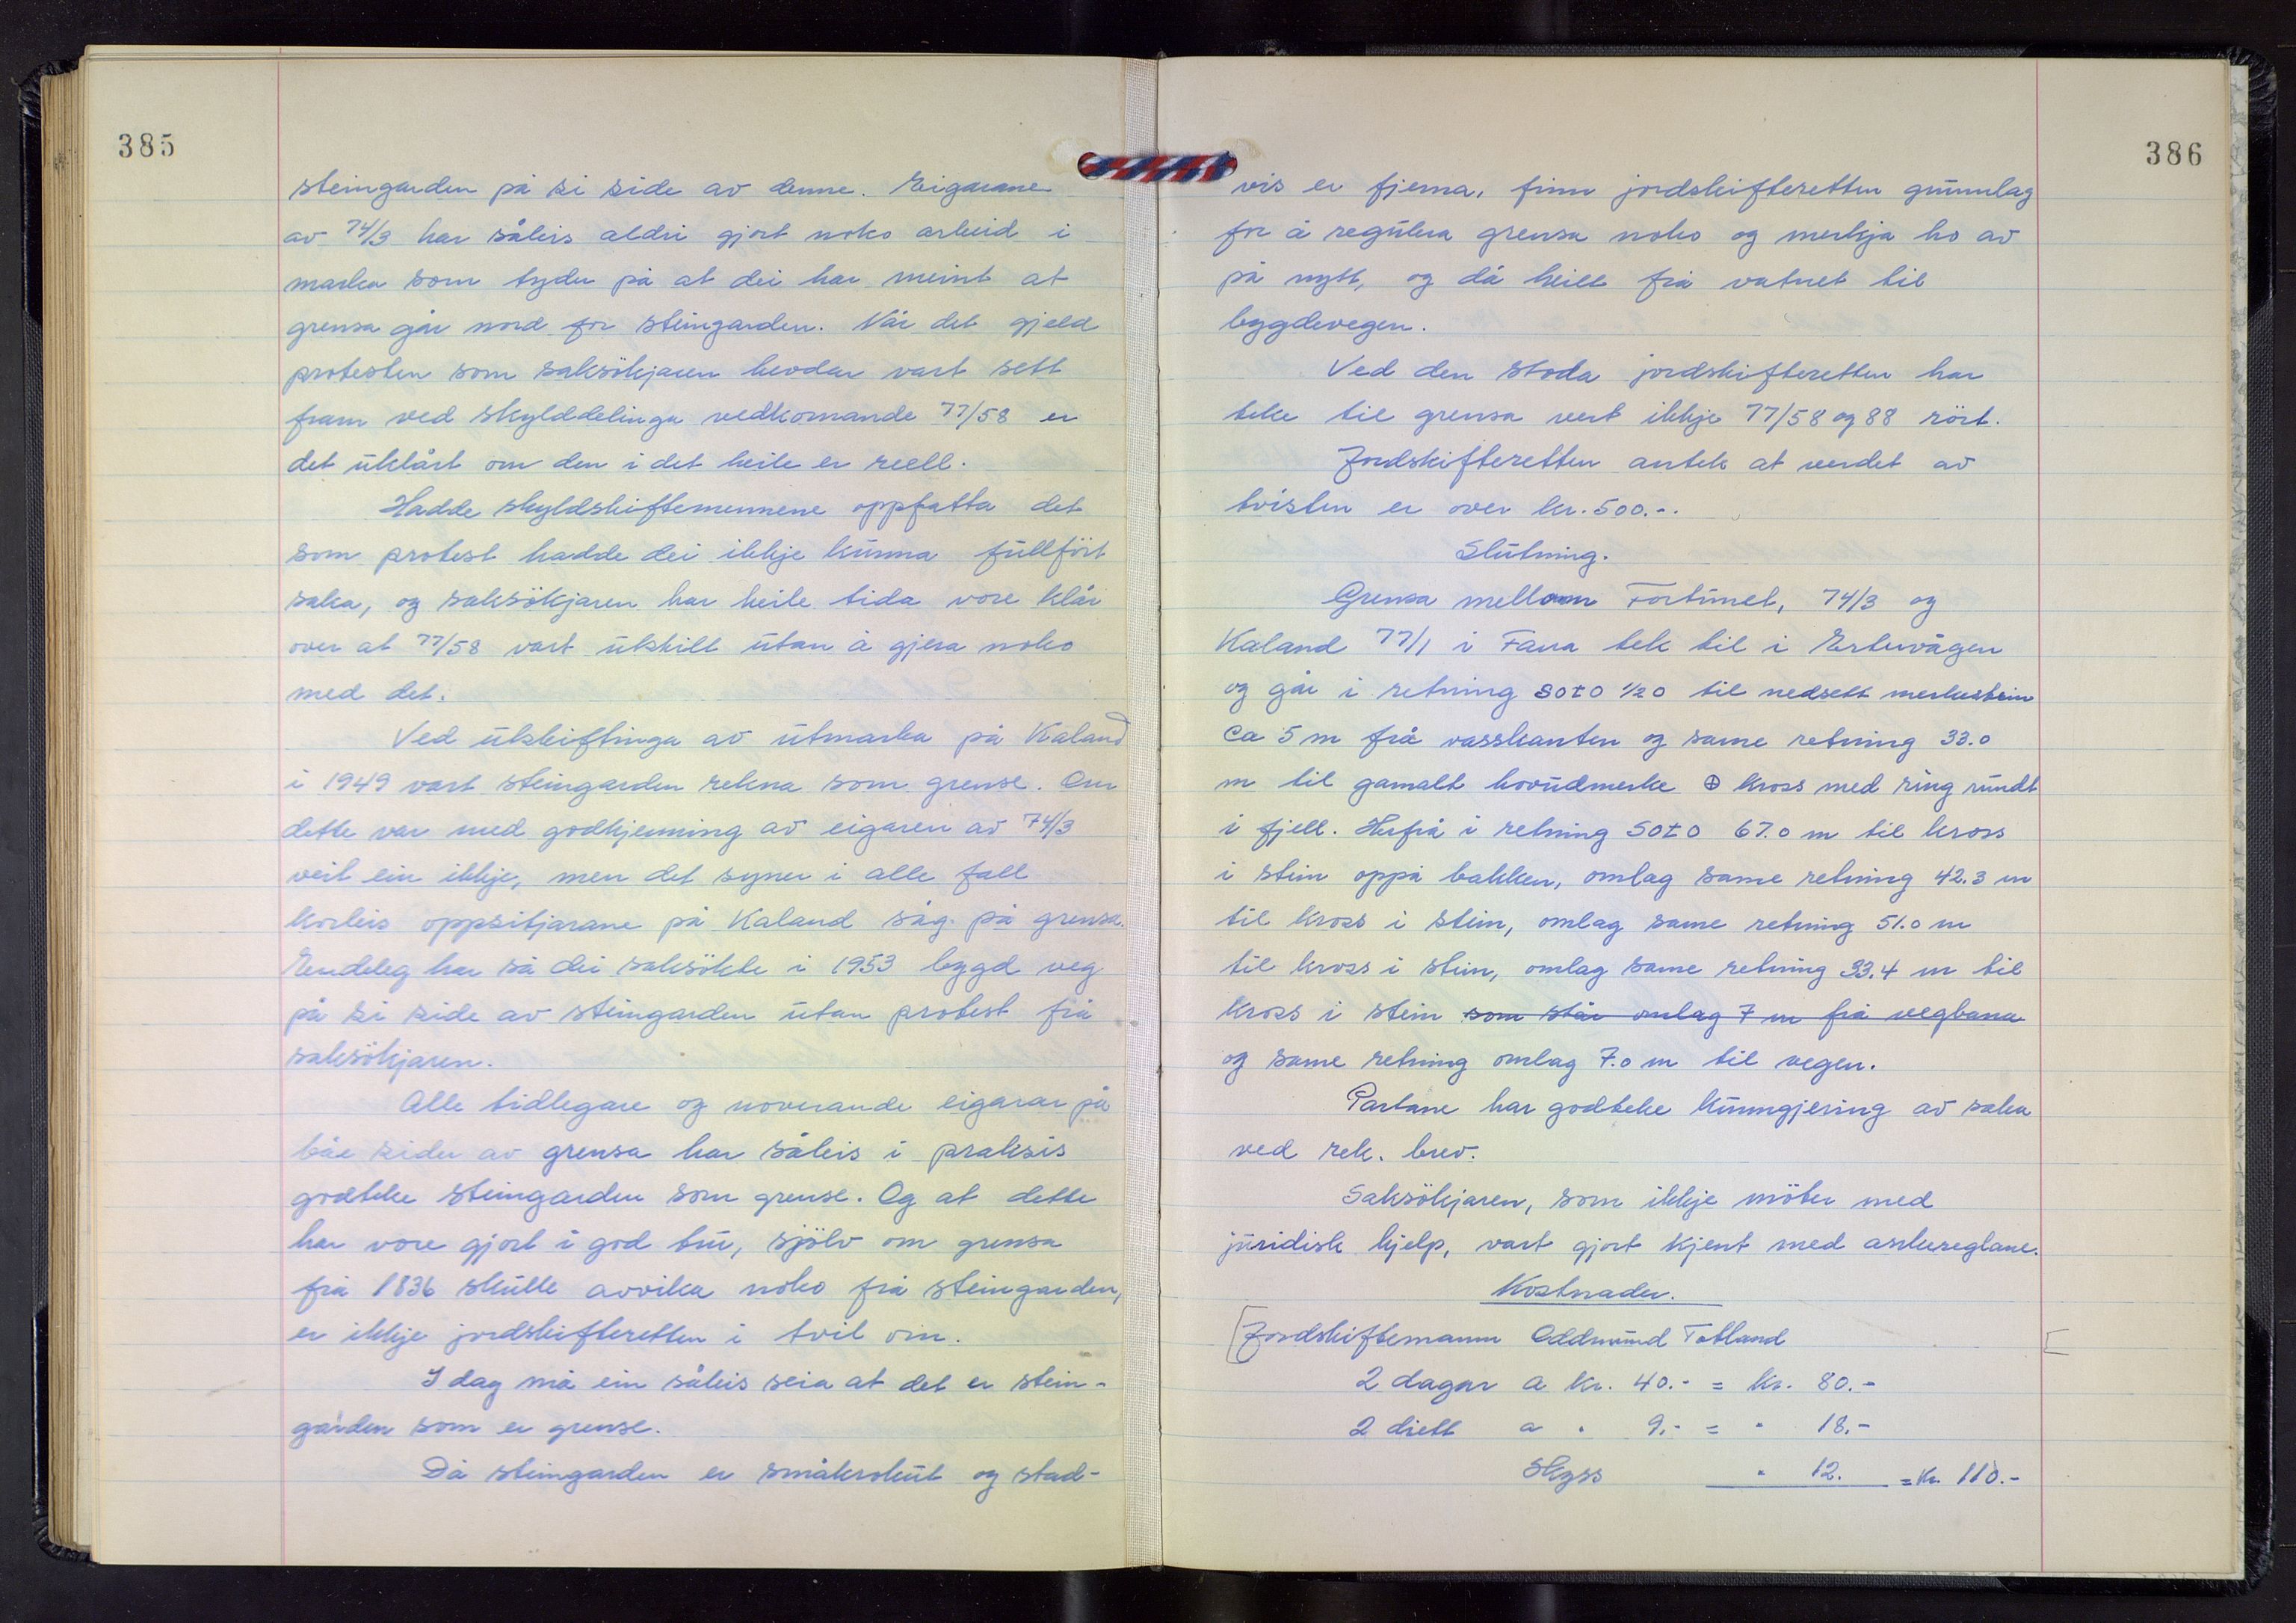 385
steingarden på si side av denne. Eigarane
av 74/3 har såleis aldri gjort noko arbeid i
marka som tyder på at dei har meint at
grensa går nord for steingarden. Når det gjeld
protesten som saksökjaren hevdar vart sett
fram ved skylddelinga vedkomande 77/58 er
det uklårt om den i det heile er reell.
Hadde skyldskiftemennene oppfatta det
som protest hadde dei ikkje kunna fullfört
saka, og saksökjaren har heile tida vore klår
over at 77/58 vart utskilt utan å gjera noko
med det.
Ved utskiftinga av utmarka på Kaland
i 1949 vart steingarden rekna som grense. Om
dette var med godkjenning av eigaren av 74/3
veit ein ikkje, men det syner i alle fall
korleis oppsitjarane på Kaland såg på grensa.
Endeleg har så dei saksökte i 1953 bygd veg
på si side av steingarden utan protest frå
saksökjaren.
Alle tidlegare og noverande eigarar på
båe sider av grensa har såleis i praksis
godteke steingarden som grense. Og at dette
har vore gjort i god tru, sjölv om grensa
frå 1836 skulle avvika noko frå steingarden,
er ikkje jordskifteretten i tvil om.
I dag må ein såleis seia at det er stein-
garden som er grense.
Då steingarden er småkrokut og stad-
386
vis er fjerna, finn jordskifteretten grunnlag
for å regulera grensa noko og merkja ho av
på nytt, og då heilt frå vatnet til
bygdevegen.
Ved den stoda jordskifteretten har
teke til grensa vert ikkje 77/58 og 88 rört.
Jordskifteretten antek at verdet av
tvisten er over kr. 500.-.
Slutning.
Grensa mellom Fortunet, 74/3 og
Kaland 77/1 i Fana tek til i Ertevågen
og går i retning SOtO 1/2 O til nedsett merkestein
ca 5 m frå vasskanten og same retning 33.0
m til gamalt hovudmerke ⊕ kross med ring rundt
i fjell. Herfrå i retning SOtO 67.0 m til kross
i stein oppå bakken, omlag same retning 42.3 m
til kross i stein, omlag same retning 51.0 m
til kross i stein, omlag same retning 33.4 m til
kross i stein som står omlag 7 m frå vegbana
og same retning omlag 7.0 m til vegen.
Partane har godteke kunngjering av saka
ved rek. brev.
Saksökjaren, som ikkje möter med
juridisk hjelp, vart gjort kjent med ankereglane.
Kostnader.
[Jordskiftemann Oddmund Totland [
2 dagar a kr. 40.- = kr. 80.-
2 diett a " 9.- = " 18.-
Skyss " 12. = kr. 110.-